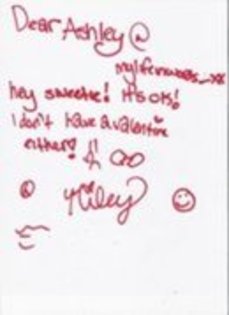 Dear Ashley @
hey sweetie! It's ok!
I don't have a valentine
either!
Miley